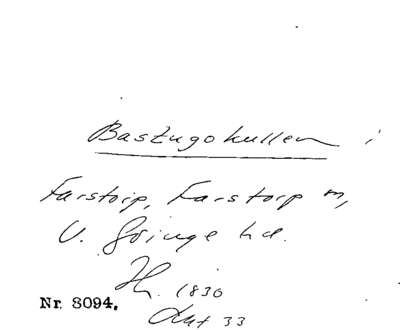 Bastugokullen i
Farstorp, Farstorp sn,
V. Göinge hd.
Hn. 1830
Nr. 8094.
33